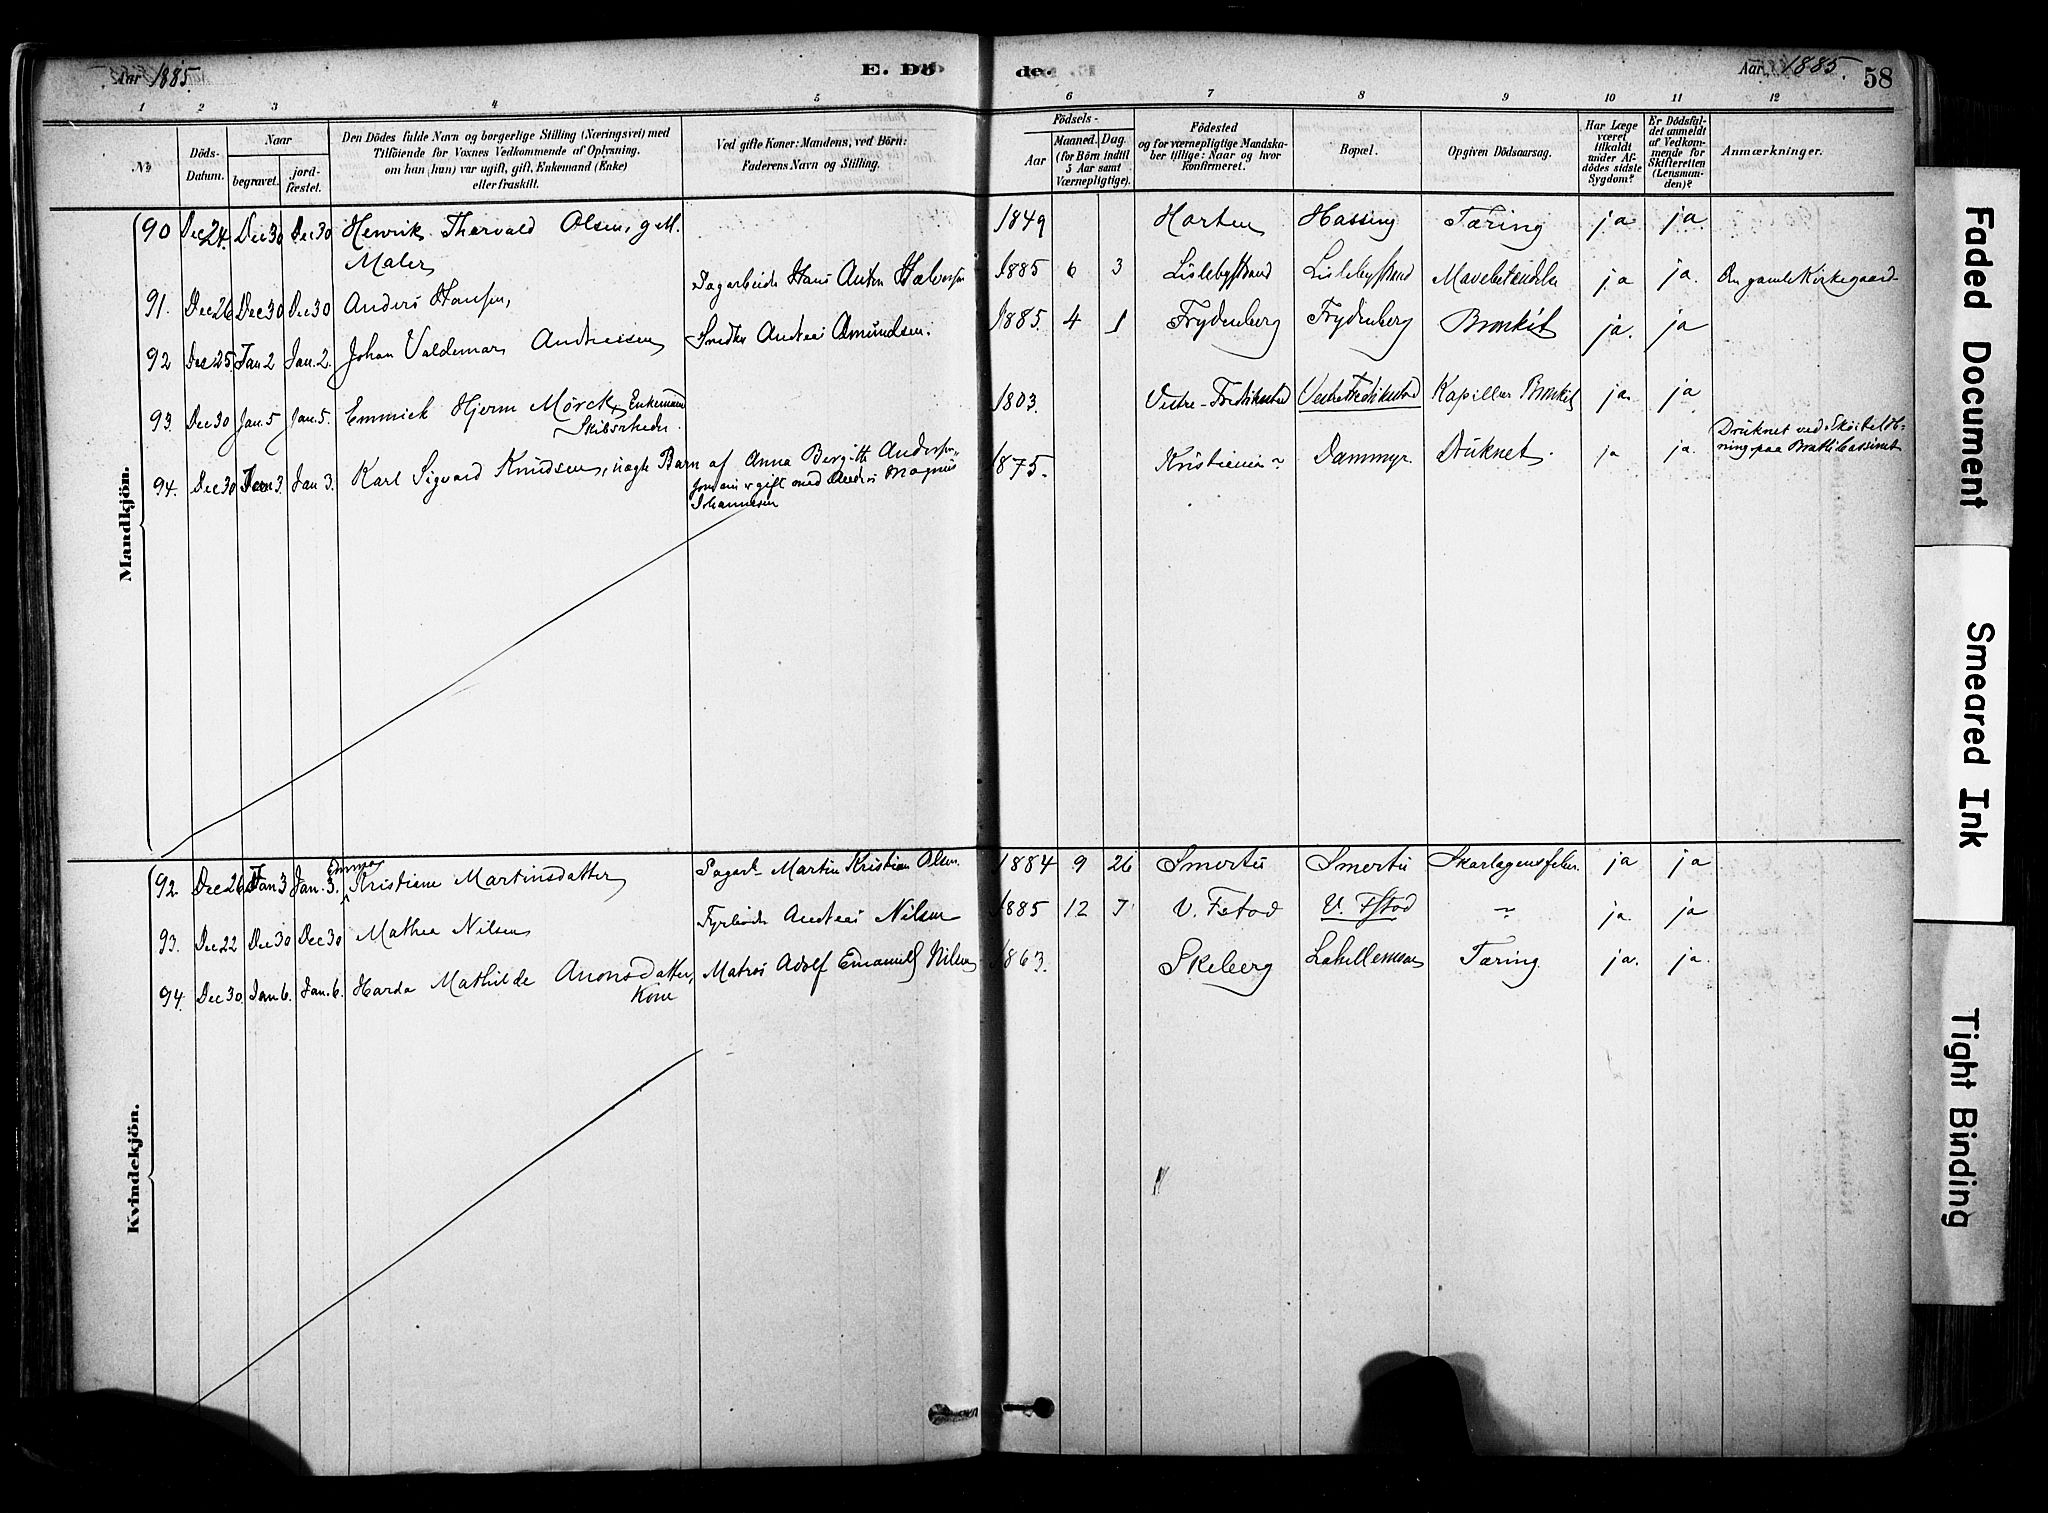 Aar 1885. E. Dö de. Aar 1885. 58
1 2 3 4 5 6 7 8 9 10 11 12
No. Döds-Datum. Naar begravet. jordfæstet. Den Dödes fulde Navn og borgerlige Stilling (Næringsvei) med Tilföiende for Voxnes Vedkommende af Oplysning, om han (hun) var ugift, gift, Enkemand (Enke) eller fraskilt. Ved gifte Koner: Mandens, ved Börn: Faderens Navn og Stilling. Födsels- Aar Maaned. Dag. (for Börn indtil 5 Aar samt Værnepligtige). Födested og for værnepligtige Mandskaber tillige: Naar og hvor konfirmeret. Bopæl. Opgiven Dödsaarsag. Har Læge været tilkaldt under Afdödes sidste Sygdom? Er Dödsfaldet anmeldt af Vedkommende for Skifteretten (Lensmanden)? Anmærkninger.
Mandkjön.
90 Dec 24. Dec 30 Dec 30 Henrik Thorvald Olsen, g M. 1849 Horten Hassing Tæring ja ja.
Maler
91. Dec 26 Dec 30 Dec 30 Anders Hansen, Dagarbeider Hans Anton Halvorsen 1885 6 3 Lislebystrand Lislebystrand Mavebetændelse ja ja. Den gamle Kirkegaard
92 Dec 25. Jan 2 Jan. 2. Johan Valdemar Andreasen Snedker Andreas Amundsen. 1885. 4 1 Frydenberg Frydenberg Bronkit ja. ja
93. Dec 30 Jan. 5 Jan. 5. Emmick Hjerm Mörck, Enkemand 1803. Vestre-Fredrikstad Vestre Fredrikstad Kapillær Bronkit ja. ja
Skibsrheder.
94. Dec 30 Jan 3. Jan 3. Karl Sigvard Knudsen, uægte Barn af Anna Bergitte Andersen, 1875. Kristiania Dammyr. Druknet. ja ja. Druknet ved Skøiteløbning paa
som er gift med Anders Magnus
Johannesen
Kvindekjön.
92. Dec 26 Jan 3 Jan. 3. Emma Kristiane Martinsdatter Dagarb. Martin Kristian Olsen. 1884 9 26 Smertu Smertu Skarlagensfeber. ja ja
93. Dec 22 Dec 30 Dec 30 Mathea Nilsen Fyrböder Andreas Nilsen 1885 12 7 V. Fstad V. Fstad " ja ja
94. Dec 30. Jan 6. Jan. 6. Harda Mathilde Aronsdatter, Matros Adolf Emanuel Nilsen 1863. Skeberg Tæring. ja. ja.
Kone
Faded Document
Smeared Ink
Tight Binding